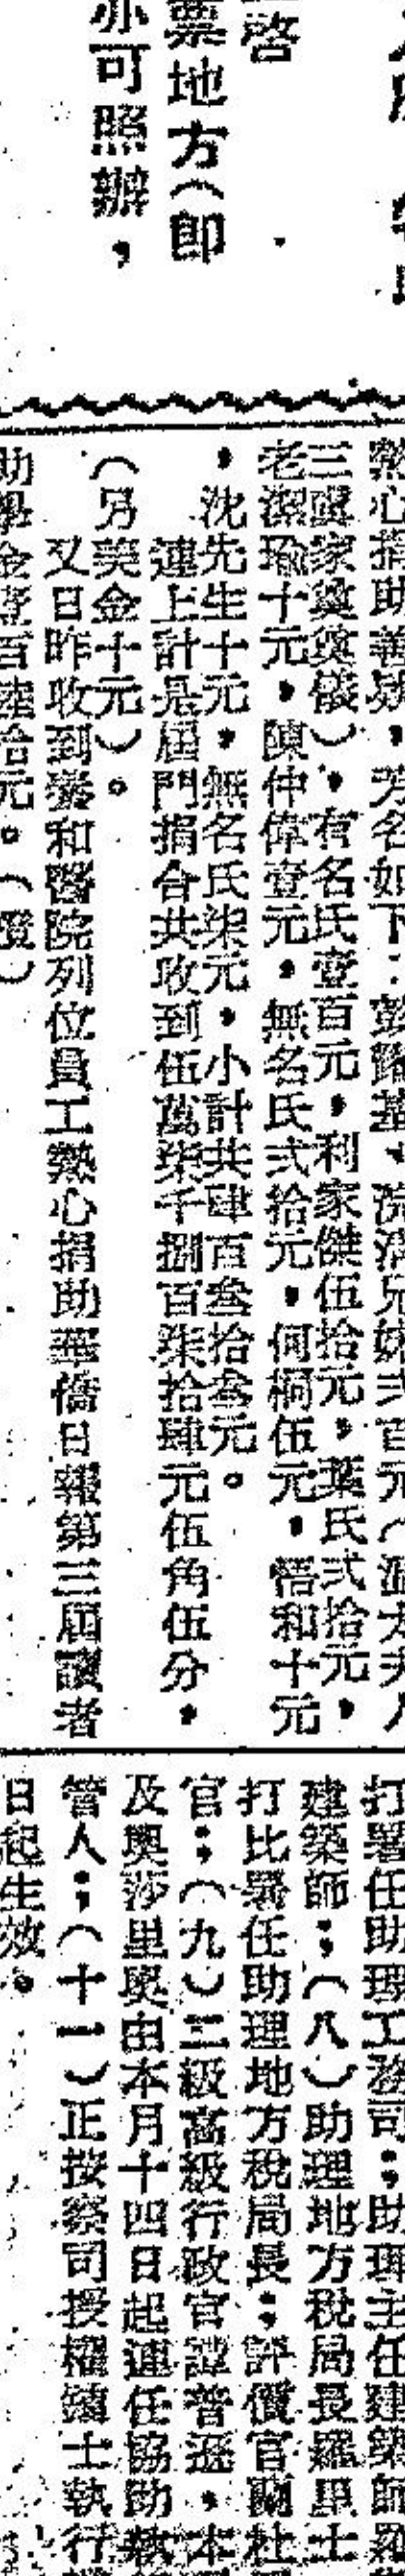 啓
票地方（即
亦可照辦，
熱心捐助善款，芳名如下：
三翼家奠儀），有名氏壹百元，利家傑伍拾元，葉氏弍拾元，
老潔瑜十元，陳仲偉壹元，無名氏弍拾元，何桐伍元，悟和十元
，沈先生十元，無名氏柒元，小計共肆百叁拾叁元。
連上計是屆門捐合共收到伍萬柒千捌百柒拾肆元伍角伍分，
（另美金十元）。
又日昨收到養和醫院列位員工熱心捐助華僑日報第三屆讀者
助學金壹百陸拾元。
打署任助理工務司；助理主任建築師羅
建築師；（八）助理地方稅局長羅里士
打比署任助理地方稅局長；評價官蘭杜
官；（九）二級高級行政官譚普遜，本
及奧莎里奧由本月十四日起連任協助執
管人；（十一）正按察司授權鏞士執行
日起生效。